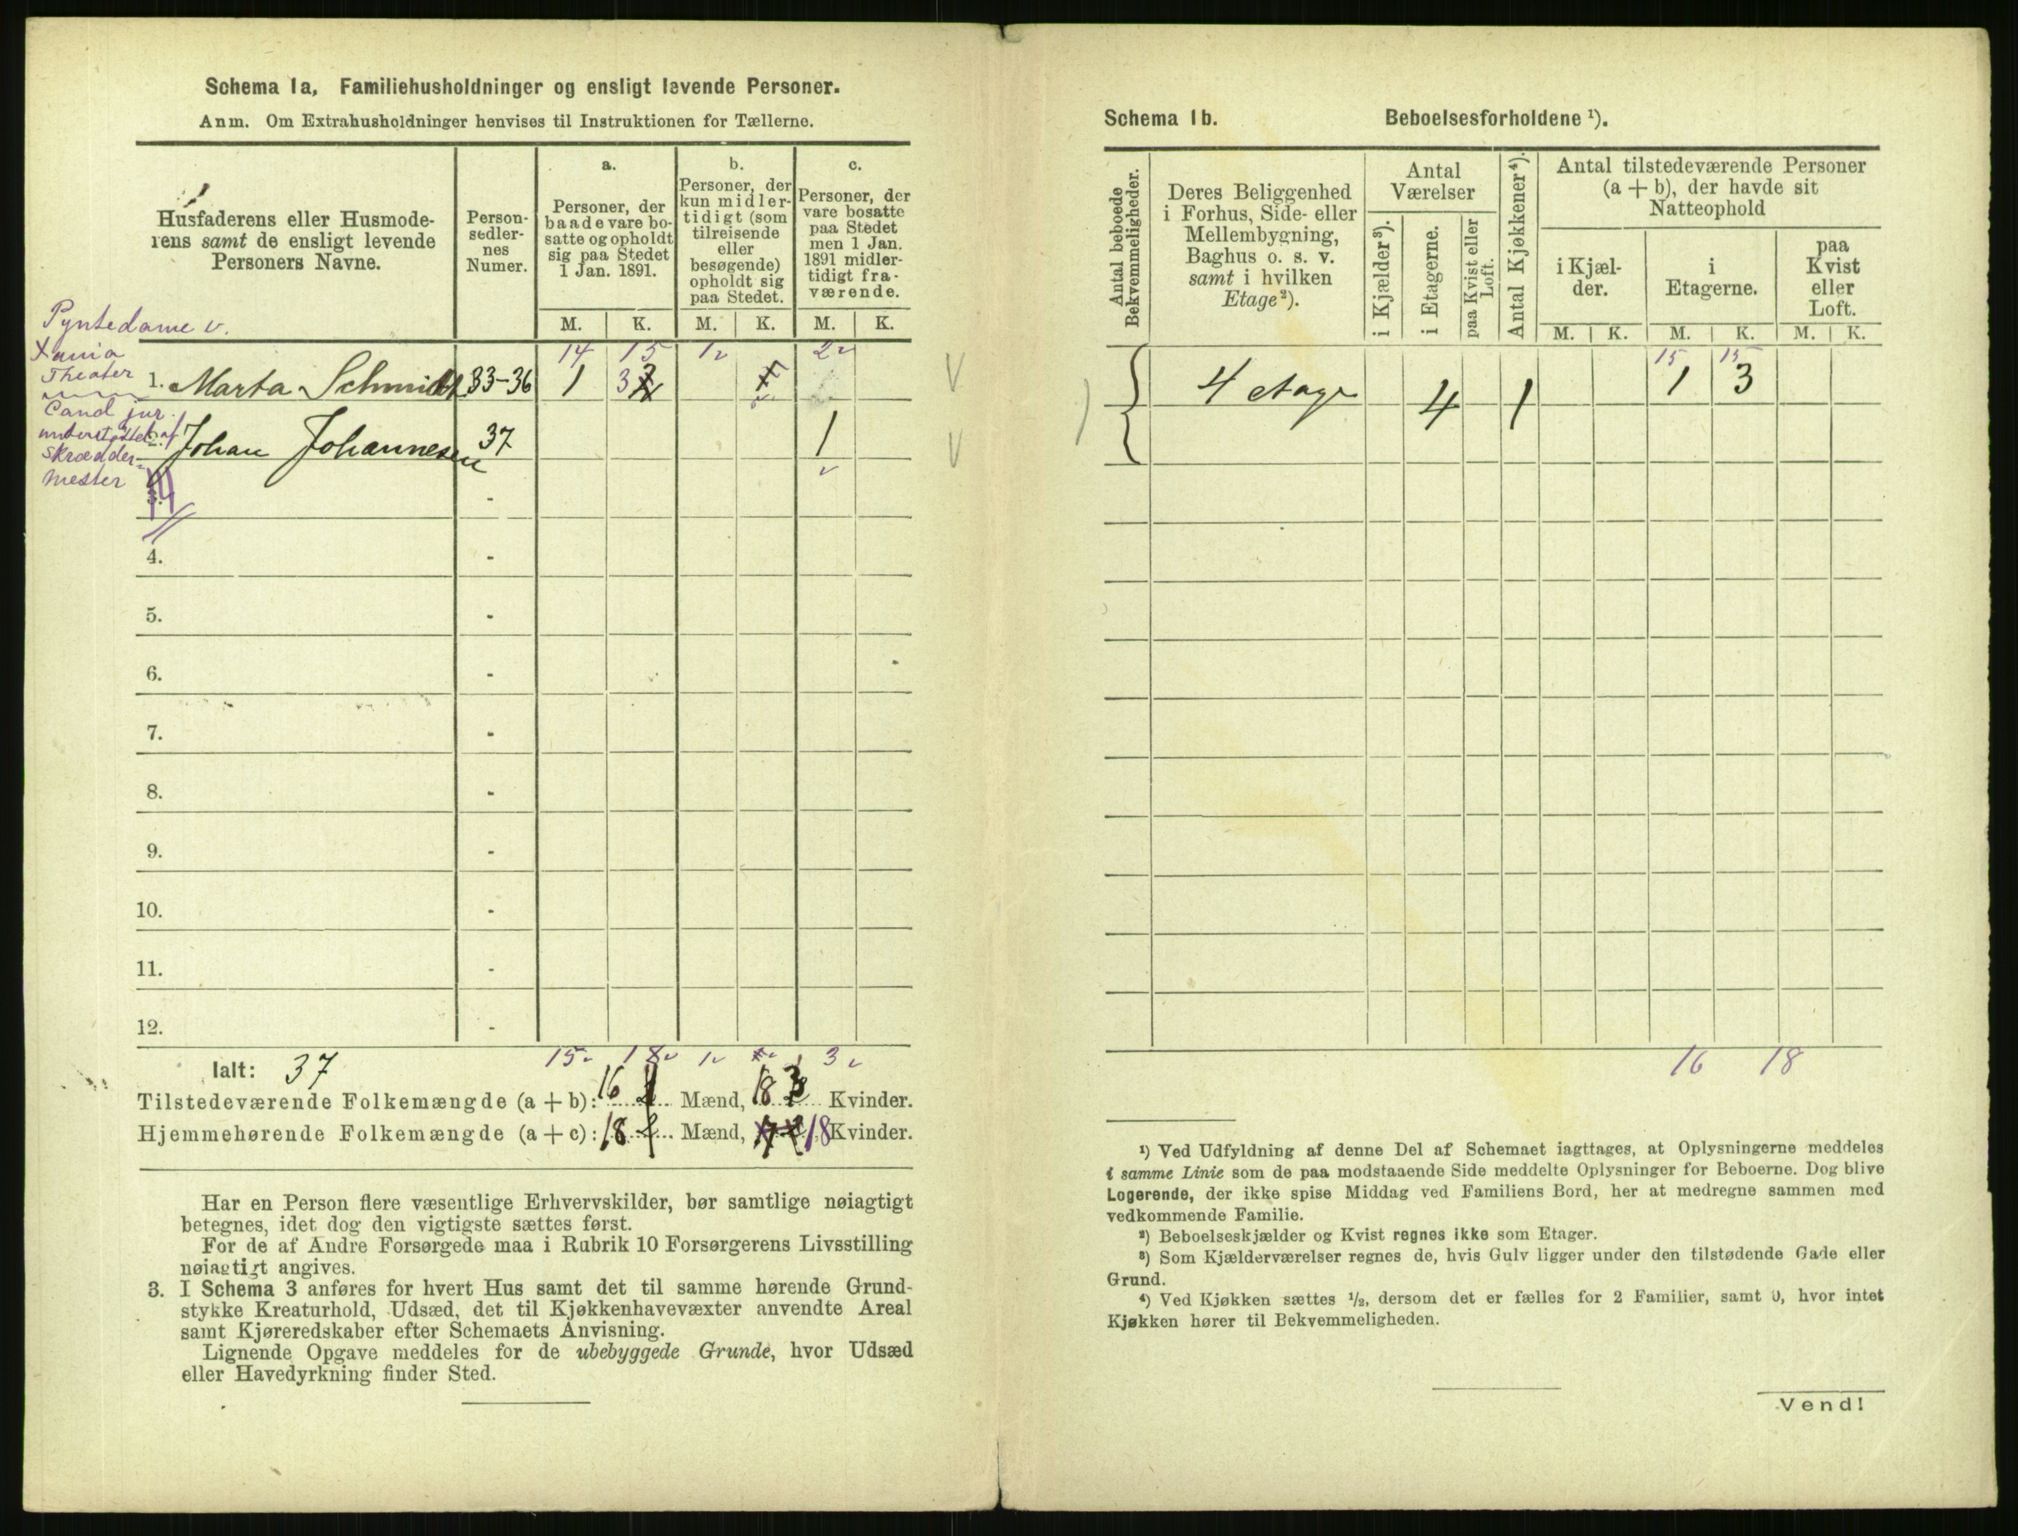 Schema 1a, Familiehusholdninger og ensligt levende Personer.
Anm. Om Extrahusholdninger henvises til Instruktionen for Tællerne.
Husfaderens eller Husmode-
rens samt de ensligt levende
Personers Navne.
Person-
sedler-
nes
Numer.
a.
Personer, der
baade vare bo-
satte og opholdt
sig paa Stedet
1 Jan. 1891.
b.
Personer, der
kun midler-
tidigt (som
tilreisende
eller
besøgende)
opholdt sig
paa Stedet.
c.
Personer, der
vare bosatte
paa Stedet
men 1 Jan.
1891 midler-
tidigt fra-
værende.
M. K. M. K. M. K.
Pyntedame v.
Xania
Theater
14 15 1 2
1. Marta Schmidt 33-36 1 3
Cand jur.
understøttet af
Skrædder-
mester
2. Johan Johannesen 37 1
3. -
4. -
5. -
6. -
7. -
8. -
9. -
10. -
11. -
12. -
15 18 1 3
Ialt: 37
Tilstedeværende Folkemængde (a + b): 16 Mænd, 18 Kvinder.
Hjemmehørende Folkemængde (a + c): 18 Mænd, 18 Kvinder.
Har en Person flere væsentlige Erhvervskilder, bør samtlige nøiagtigt
betegnes, idet dog den vigtigste sættes først.
For de af Andre Forsørgede maa i Rubrik 10 Forsørgerens Livsstilling
nøiagtigt angives.
3. I Schema 3 anføres for hvert Hus samt det til samme hørende Grund-
stykke Kreaturhold, Udsæd, det til Kjøkkenhavevæxter anvendte Areal
samt Kjøreredskaber efter Schemaets Anvisning.
Lignende Opgave meddeles for de ubebyggede Grunde, hvor Udsæd
eller Havedyrkning finder Sted.
Schema 1b. Beboelsesforholdene ¹).
Antal beboede
Bekvemmeligheder.
Deres Beliggenhed
i Forhus, Side- eller
Mellembygning,
Baghus o. s. v.
samt i hvilken
Etage²).
Antal
Værelser
i Kjælder³).
i Etagerne.
paa Kvist eller
Loft.
Antal Kjøkkener⁴).
Antal tilstedeværende Personer
(a + b), der havde sit
Natteophold
i Kjæl-
der.
i
Etagerne.
paa
Kvist
eller
Loft.
M. K. M. K. M. K.
15 15
4 etage 4 1 1 3
16 18
¹) Ved Udfyldning af denne Del af Schemaet iagttages, at Oplysningerne meddeles
i samme Linie som de paa modstaaende Side meddelte Oplysninger for Beboerne. Dog blive
Logerende, der ikke spise Middag ved Familiens Bord, her at medregne sammen med
vedkommende Familie.
²) Beboelseskjælder og Kvist regnes ikke som Etager.
³) Som Kjælderværelser regnes de, hvis Gulv ligger under den tilstødende Gade eller
Grund.
⁴) Ved Kjøkken sættes ½, dersom det er fælles for 2 Familier, samt 0, hvor intet
Kjøkken hører til Bekvemmeligheden.
Vend!